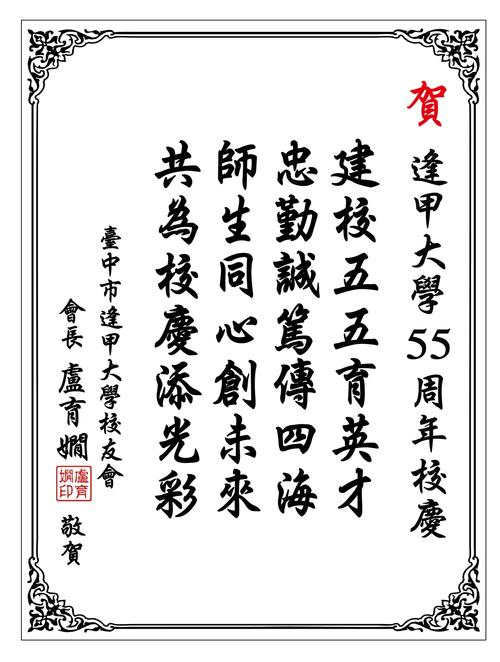 賀
逢甲大學55周年校慶
建校五五育英才
忠勤誠篤傳四海
師生同心創未來
共為校慶添光彩
臺中市逢甲大學校友會
會長 盧育嫺 敬賀
盧育嫺印